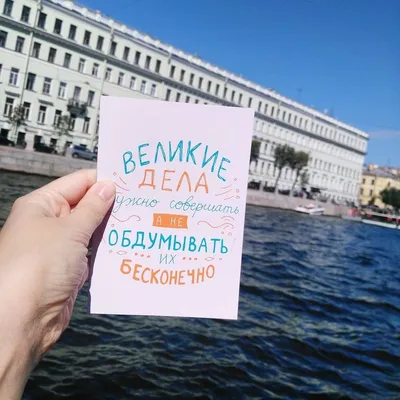 ВЕЛИКИЕ
ДЕЛА
нужно совершать
А НЕ
ОБДУМЫВАТЬ
ИХ
БЕСКОНЕЧНО